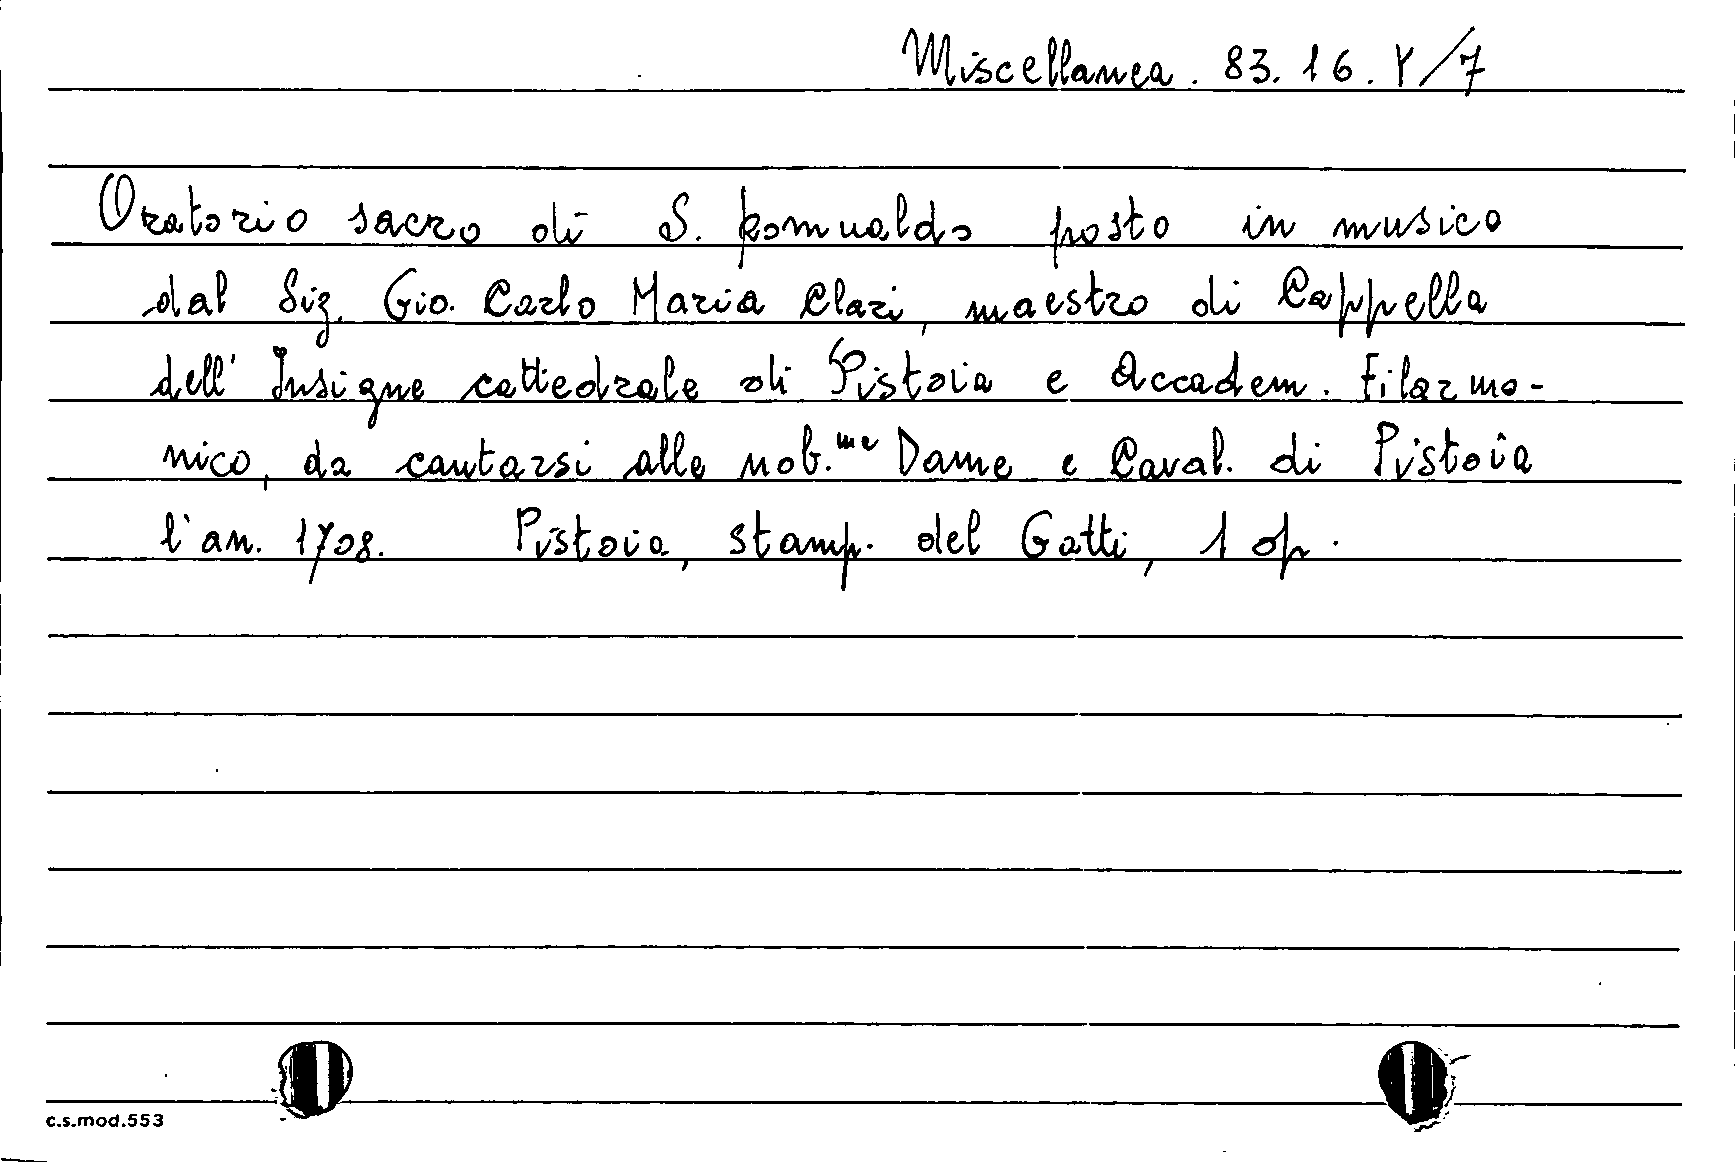 Miscellanea. 83. 16. Y/7
Oratorio sacro di S. Romualdo posto in musica
dal Sig. Gio. Carlo Maria Clari, maestro di Cappella
dell' Insigne cattedrale di Pistoia e Accadem. Filarmo-
nico, da cantarsi alle nob.me Dame e Caval. di Pistoia
l'an. 1708. Pistoia, stamp. del Gatti, 1 op.
c.s.mod.553